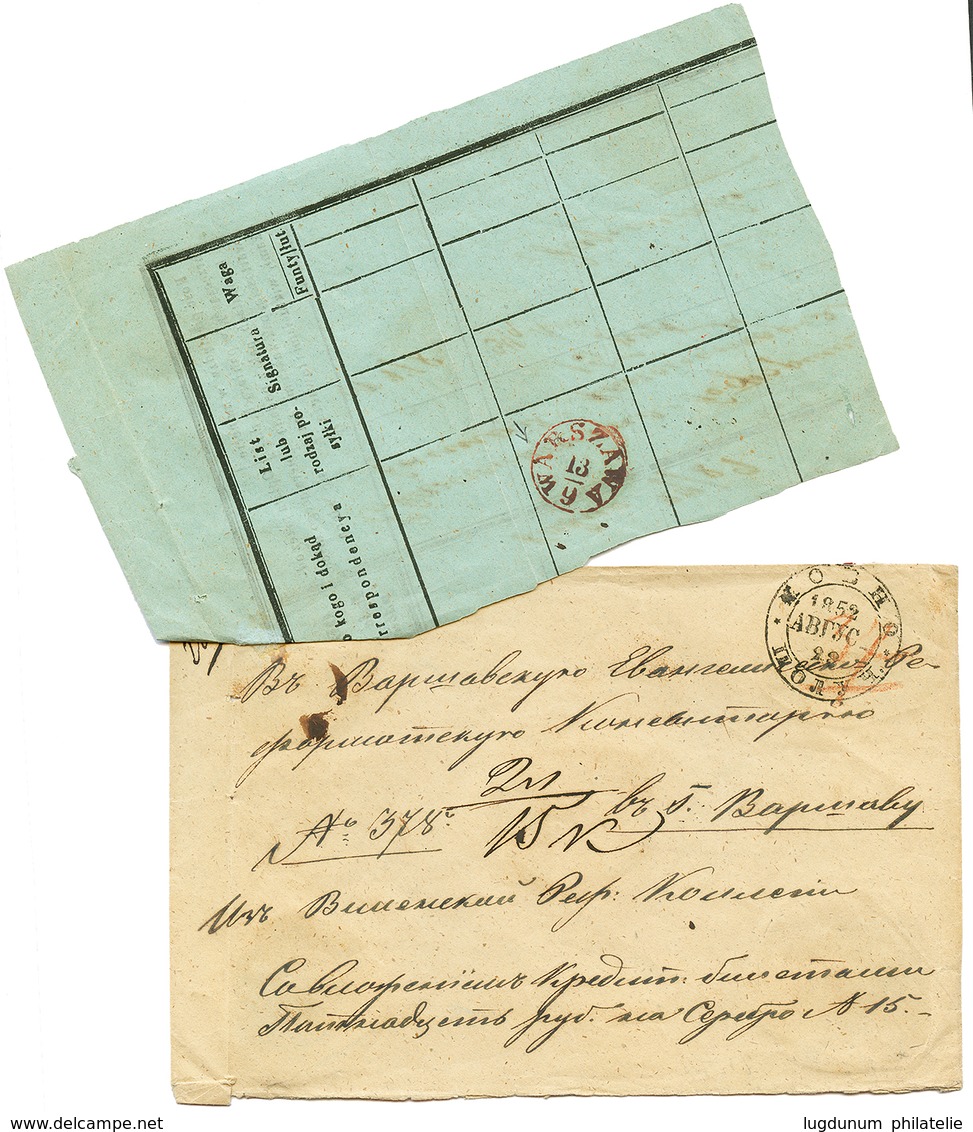 Waga
Funty|łut
Signatura
List
lub
rodzaj po-
syłki
kogo i dokąd
rrespondencya
WARSZAWA
13
6
1852
АВГУС
22
ПОЛУЧ
Въ Варшавскую Евангелическо Ре-
форматскую Консисторію
№ 378.
2л
15 к
въ г. Варшаву
Изъ Виленской Реф: Коллегіи
Со вложеніемъ Кредит: билетами
Пятнадцать руб. на Серебро № 15.-
delcampe.net
lugdunum philatelie